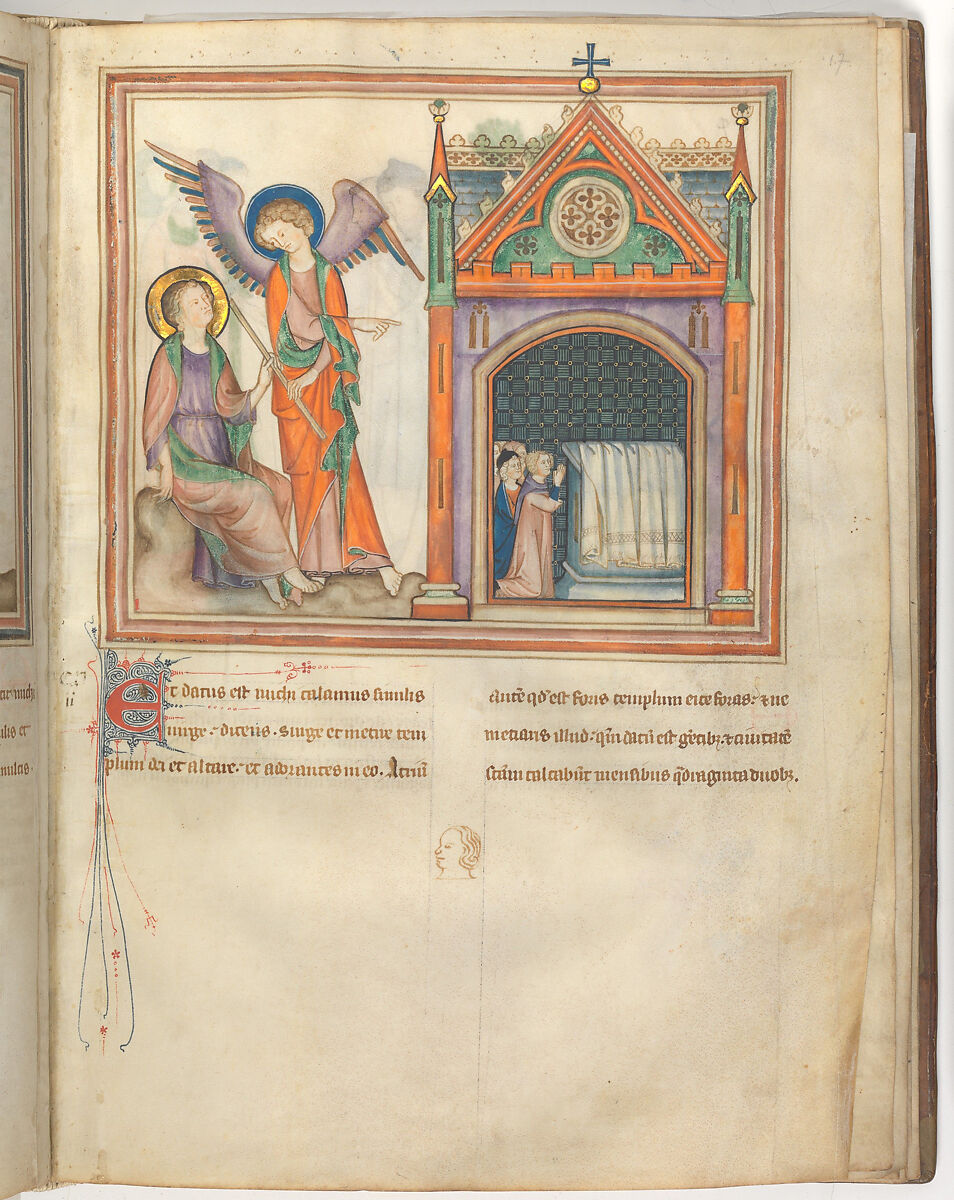 17
Et datus est michi calamus similis
uirge : dicens . Surge et metire tem
plum dei et altare : et adorantes in eo . Atrium
autē qđ est foris templum eice foras : ⁊ ne
metiaris illud : qm̄ datū est gētibꝫ ⁊ ciuitatē
sc̄am calcabūt mensibus qͣdraginta duobꝫ .